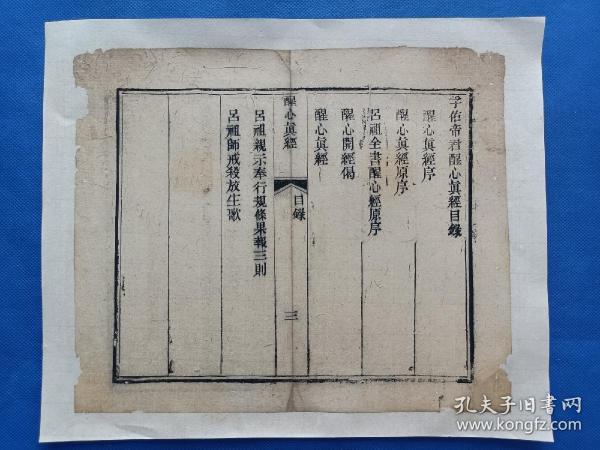 孚佑帝君醒心真經目錄
醒心真經序
醒心真經原序
呂祖全書醒心經原序
醒心開經偈
醒心真經
醒心真經
目錄
三
呂祖親示奉行規條果報三則
呂祖師戒殺放生歌
孔夫子旧书网
www.kongfz.com